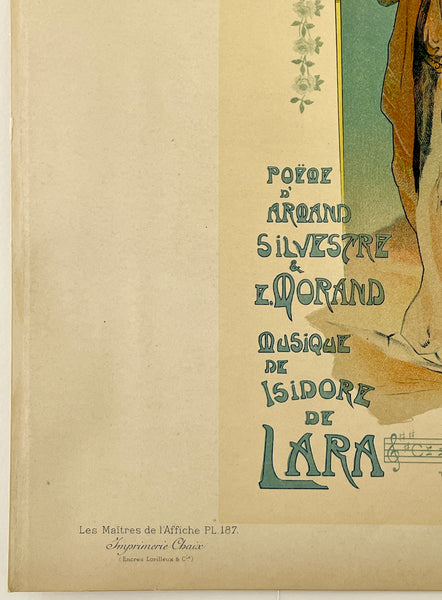 POËME
D'
ARMAND
SILVESTRE
&
E. MORAND
MUSIQUE
DE
ISIDORE
DE
LARA
Les Maîtres de l'Affiche PL.187.
Imprimerie Chaix
(Encres Lorilleux & Cie)